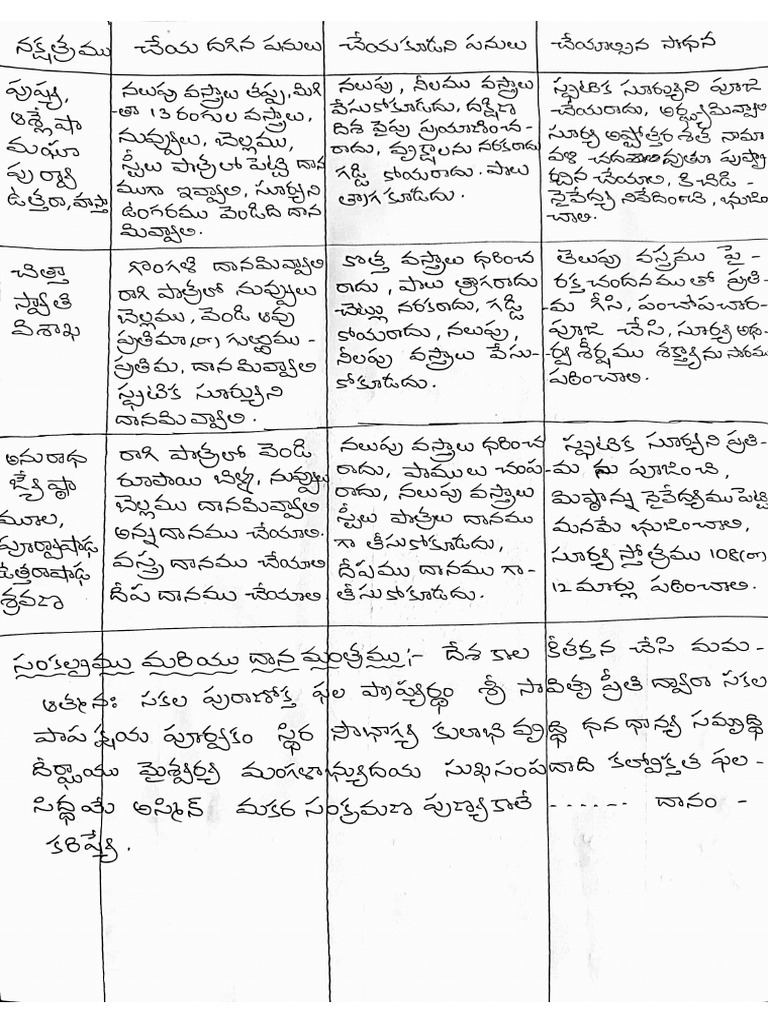 నక్షత్రము
చేయ దగిన పనులు
చేయకూడని పనులు
చేయాల్సిన సాధన
పుష్య,
ఆశ్లేషా
మఘా
పుర్వా
ఉత్తరా, హస్తా
నలుపు వస్త్రాలు తప్ప, మిగి
-తా 13 రంగుల వస్త్రాలు,
నువ్వులు, బెల్లము,
స్టీలు పాత్రలో పెట్టి దాన
ముగా ఇవ్వాలి, సూర్యుని
ఉంగరము వెండిది దాన
మివ్వాలి.
నలుపు, నీలము వస్త్రాలు
వేసుకోకూడదు, దక్షిణ
దిశ వైపు ప్రయాణించ-
రాదు, వృక్షాలను నరకరాదు
గడ్డి కోయరాదు. పాలు
త్రాగకూడదు.
స్ఫటిక సూర్యుని పూజ
చేయరాదు, అర్ఘ్యమివ్వాలి
సూర్య అష్టోత్తర శత నామా
వళి చదువుతూ పుష్పా
ర్చన చేయాలి, కిచిడి -
నైవేద్య నివేదించి, భుజిం
చాలి.
చిత్తా
స్వాతి
విశాఖ
గొంగళి దానమివ్వాలి
రాగి పాత్రలో నువ్వులు
బెల్లము, వెండి ఆవు
ప్రతిమా (లా) గుఱ్ఱము -
ప్రతిమ, దానమివ్వాలి
స్ఫటిక సూర్యుని
దానమివ్వాలి.
కొత్త వస్త్రాలు ధరించ
రాదు, పాలు త్రాగరాదు
చెట్లు నరకరాదు, గడ్డి
కోయరాదు, నలుపు,
నీలపు వస్త్రాలు వేసు-
కోకూడదు.
తెలుపు వస్త్రము పై -
రక్త చందనము తో ప్రతి-
మ గీసి, పంచోపచార-
పూజ చేసి, సూర్య అథ-
ర్వ శీర్షము శక్త్యానుసారము
పఠించాలి.
అనురాధ
జ్యేష్ఠా
మూల,
పూర్వాషాఢ
ఉత్తరాషాఢ
శ్రవణ
రాగి పాత్రలో వెండి
రూపాయి బిళ్ళ, నువ్వులు
బెల్లము దానమివ్వాలి
అన్నదానము చేయాలి.
వస్త్ర దానము చేయాలి
దీప దానము చేయాలి
నలుపు వస్త్రాలు ధరించ
రాదు, పాములు చంప-
రాదు, నలుపు వస్త్రాలు
స్టీలు పాత్రలు దానము
గా తీసుకోకూడదు,
దీపము దానము గా-
తీసుకోకూడదు.
స్ఫటిక సూర్యుని ప్రతి-
మ ను పూజించి,
మిష్ఠాన్న నైవేద్యము పెట్టి
మనమే భుజించాలి,
సూర్య స్తోత్రము 108 (లా)
12 మార్లు పఠించాలి.
సంకల్పము మరియు దాన మంత్రము :- దేశ కాల కీర్తన చేసి మమ -
ఆత్మనః సకల పురాణోక్త ఫల ప్రాప్యర్థం శ్రీ సావిత్ర ప్రీతి ద్వారా సకల
పాప క్షయ పూర్వకం స్థిర సౌభాగ్య కులాభి వృద్ధి ధన ధాన్య సమృద్ధి
దీర్ఘాయు మైశ్వర్య మంగళాభ్యుదయ సుఖసంపదాది కల్పోక్తత ఫల -
సిద్ధయే అస్మిన్ మకర సంక్రమణ పుణ్యకాలే ------ దానం -
కరిష్యే.